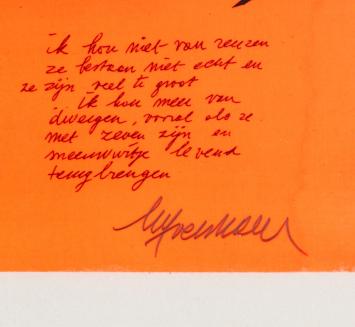 ik hou niet van reuzen
ze bestaan niet echt en
ze zijn veel te groot
ik hou meer van
dwergen, vooral als ze
met zeven zijn en
sneeuwwitje levend
terugbrengen